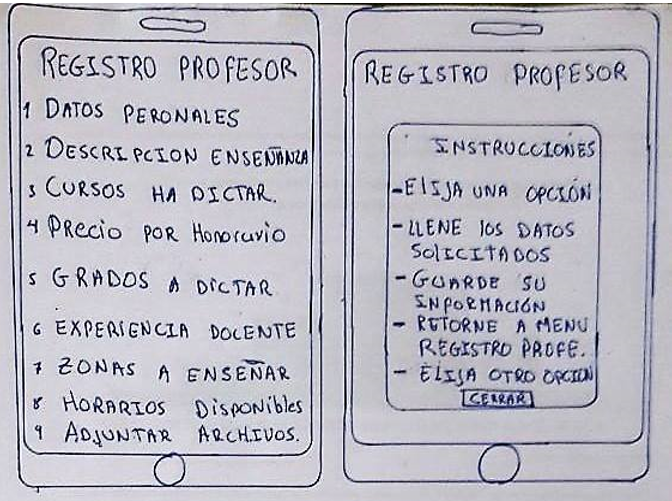 REGISTRO PROFESOR
1 DATOS PERONALES
2 DESCRIPCION ENSEÑANZA
3 CURSOS HA DICTAR.
4 PRECIO POR HONORAVIO
5 GRADOS A DICTAR
6 EXPERIENCIA DOCENTE
7 ZONAS A ENSEÑAR
8 HORARIOS DISPONIBLES
9 ADJUNTAR ARCHIVOS.
REGISTRO PROFESOR
INSTRUCCIONES
- ELIJA UNA OPCIÓN
- LLENE LOS DATOS
SOLICITADOS
- GUARDE SU
INFORMACIÓN
- RETORNE A MENU
REGISTRO PROFE.
- ELIJA OTRO OPCION
CERRAR